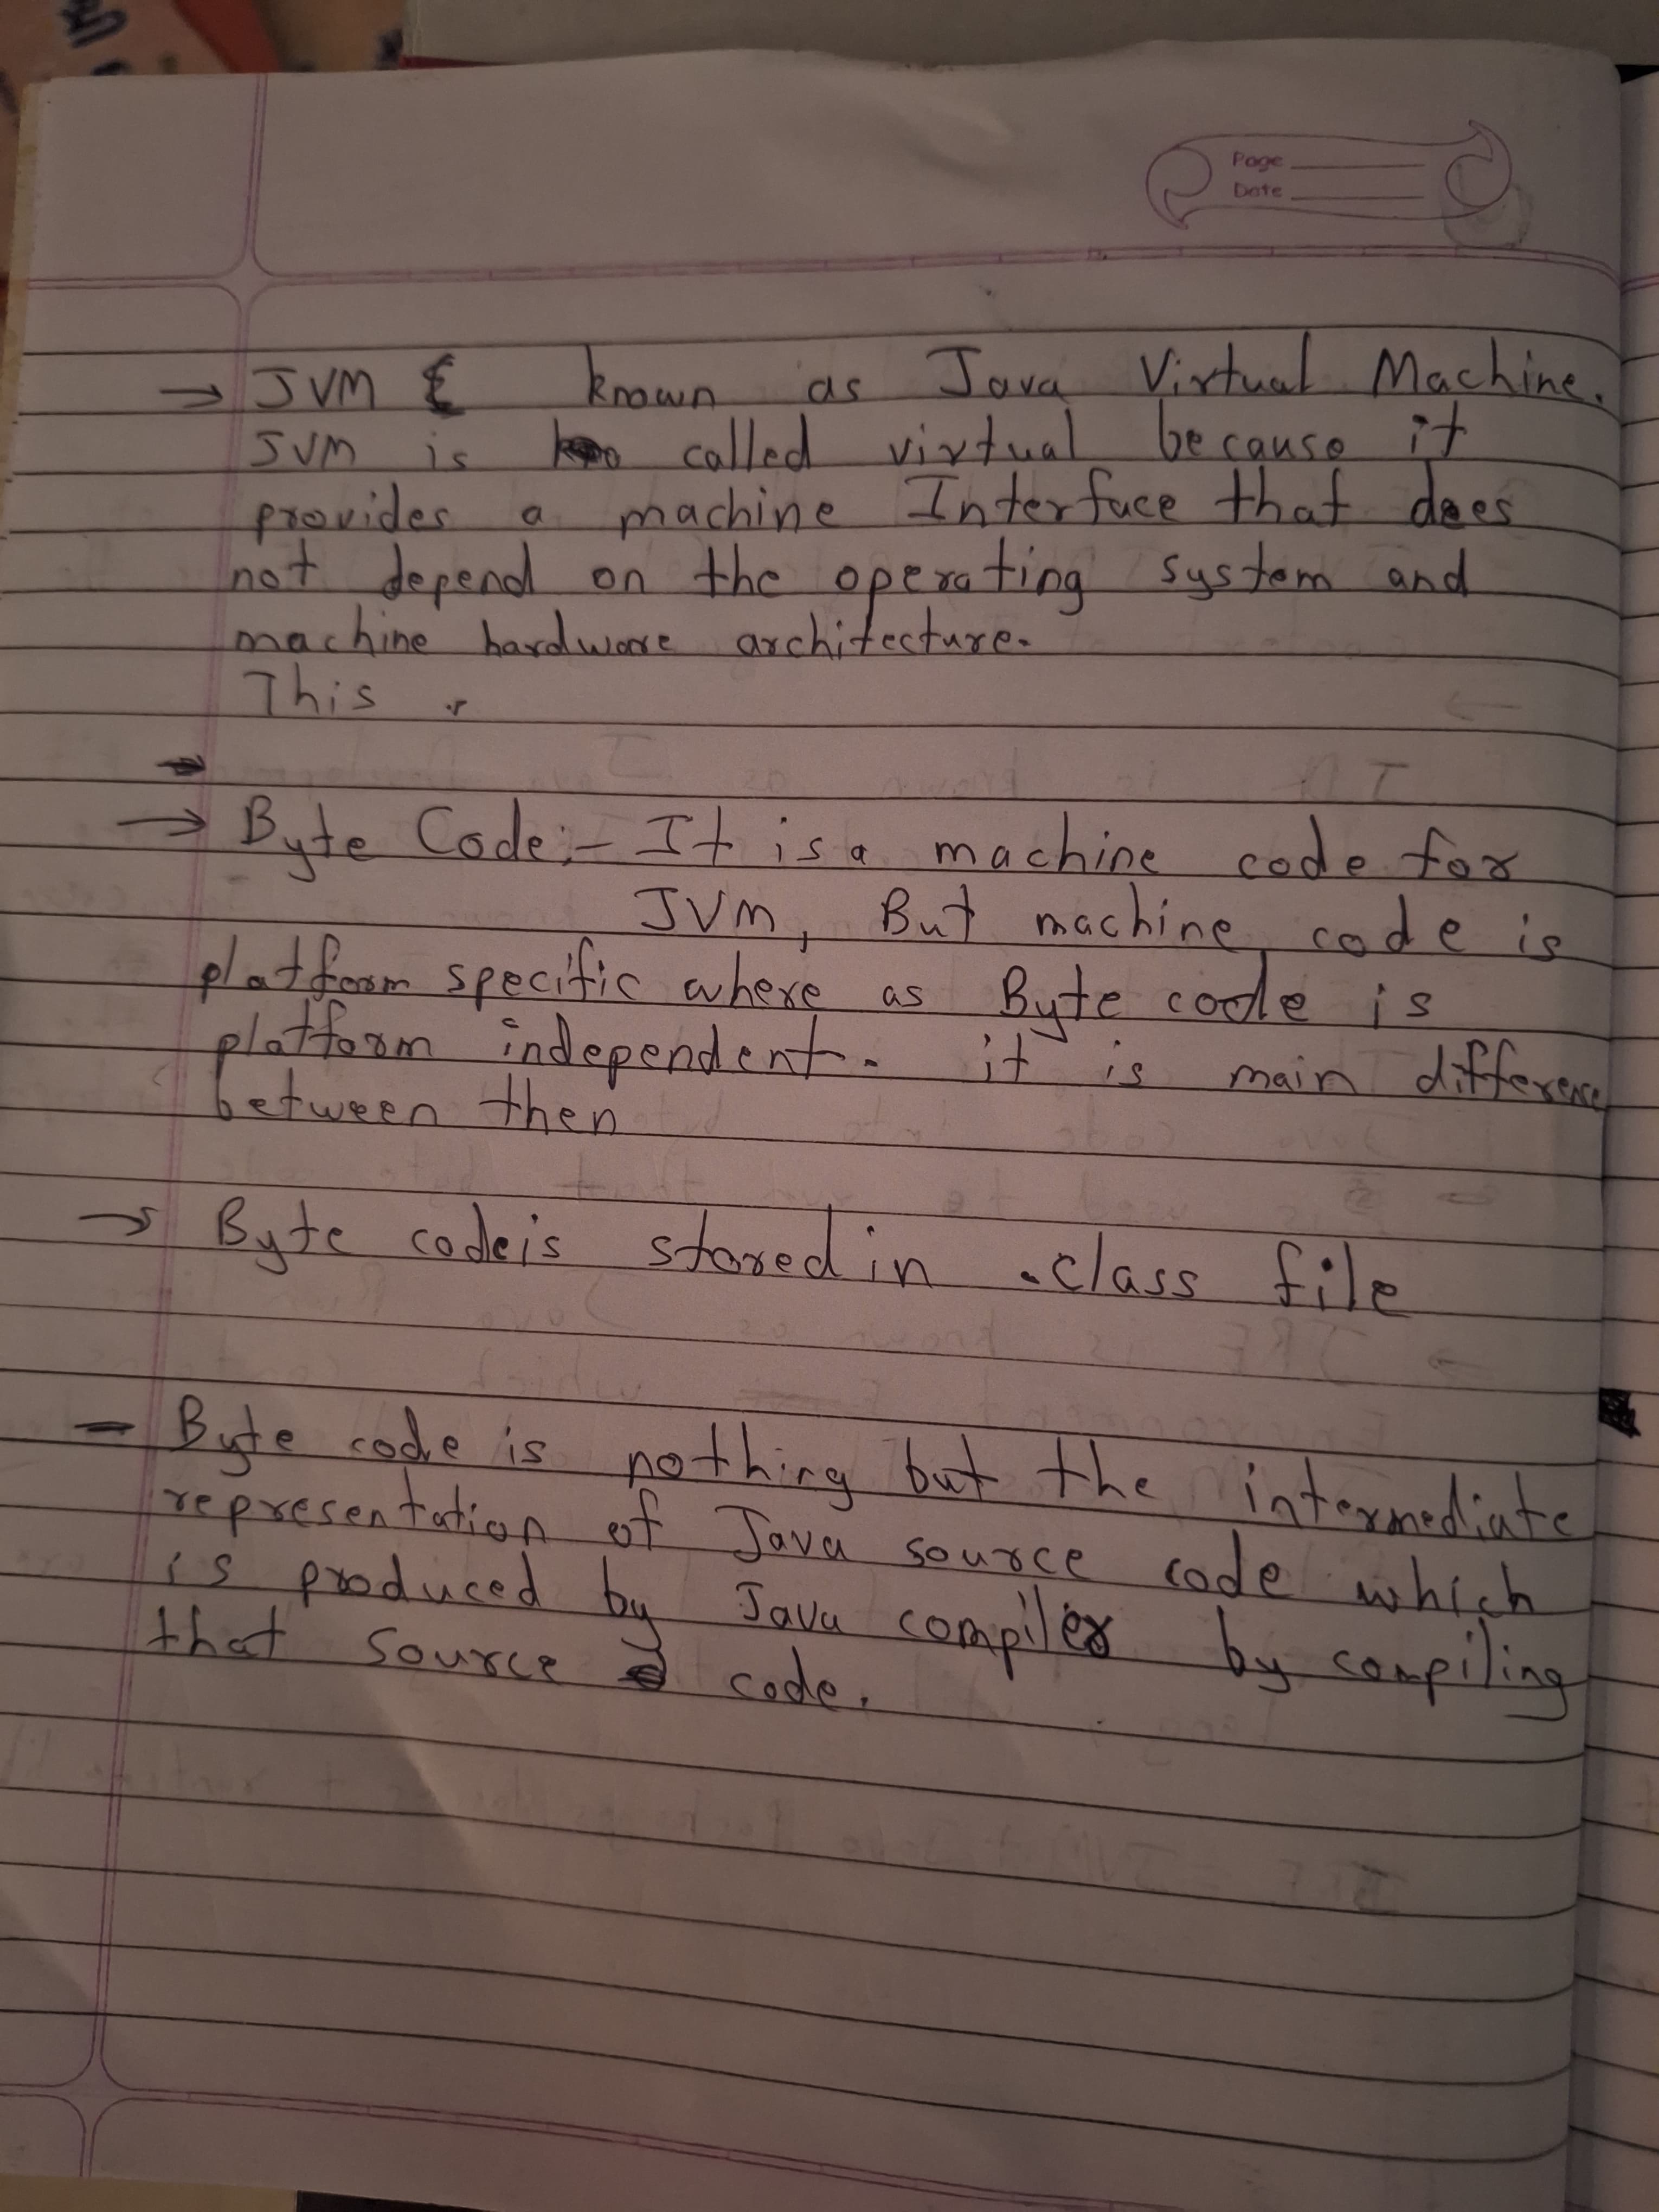 Page
Date
→ JVM known as Java Virtual Machine.
JVM is called virtual because it
provides a machine Interface that does
not depend on the operating system and
machine hardware architecture.
This
→ Byte Code:- It is a machine code for
JVM, But machine code is
platform specific where as Byte code is
platform independent. it is main difference
between then
→ Byte code is stored in .class file
- Byte code is nothing but the intermediate
representation of Java source code which
is produced by Java compiler by compiling
that source code.